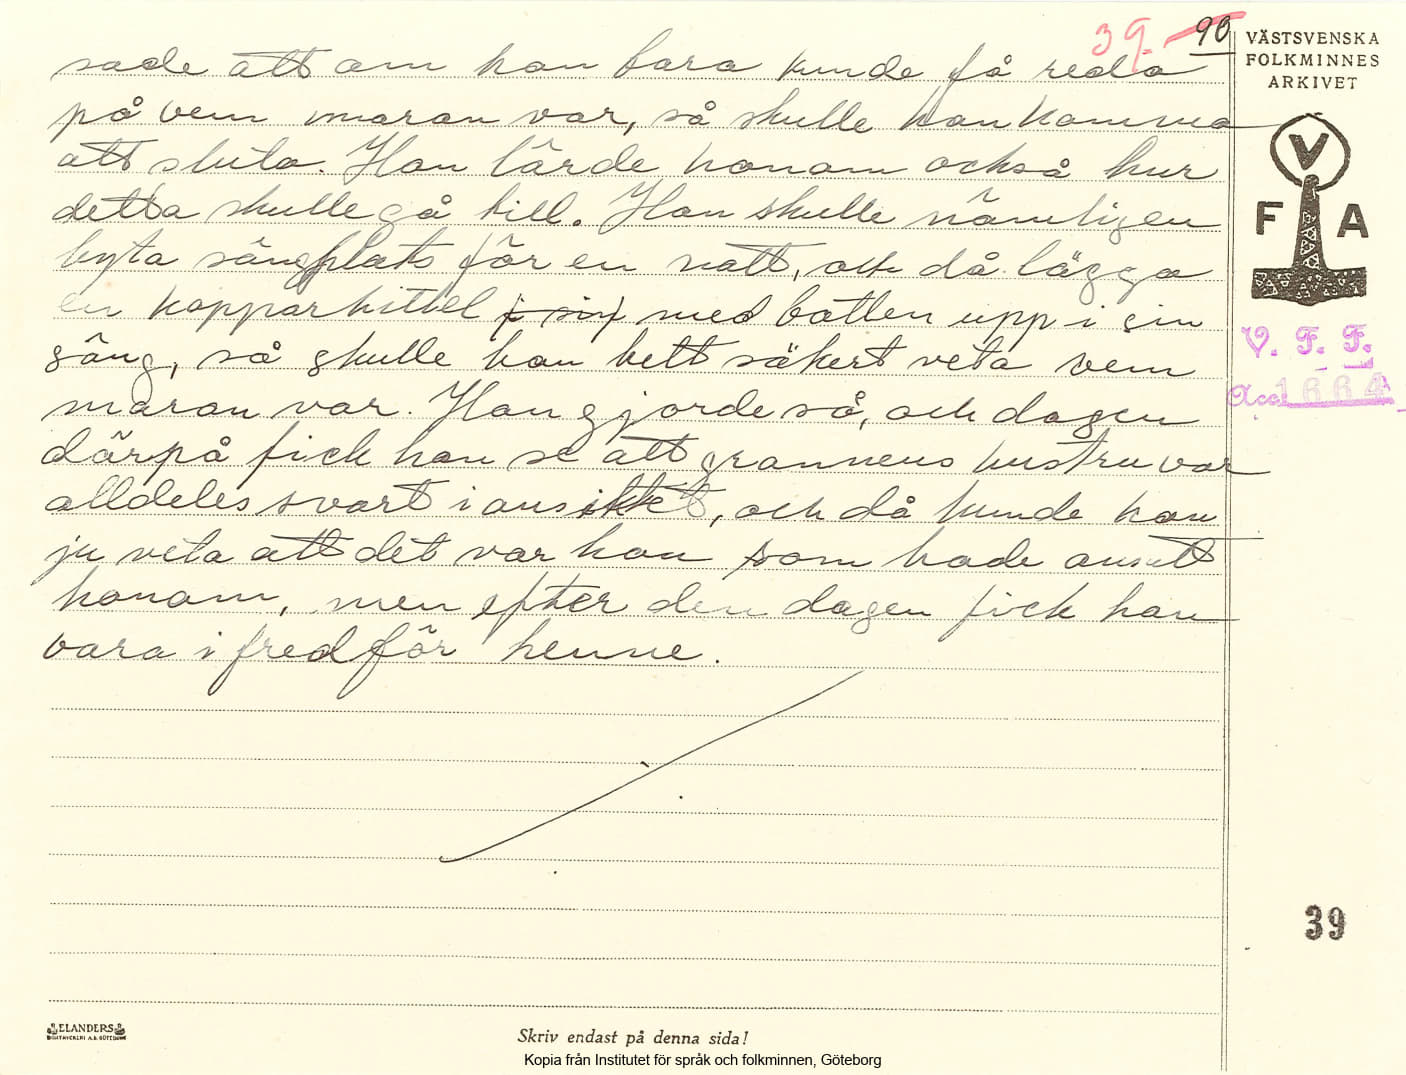 39.
90
VÄSTSVENSKA
FOLKMINNES
ARKIVET
sade att om han bara kunde få reda
på vem maran var, så skulle han komma
att sluta. Han lärde honom också hur
detta skulle gå till. Han skulle nämligen
byta sängplats för en natt, och då lägga
en kopparkittel i sin med botten upp i sin
säng, så skulle han helt säkert veta vem
maran var. Han gjorde så, och dagen
därpå fick han se att grannens hustru var
alldeles svart i ansiktet, och då kunde han
ju veta att det var hon som hade ansatt
honom, men efter den dagen fick han
vara i fred för henne.
V
F A
V. F. F.
Acc. 1664
39
ELANDERS
Skriv endast på denna sida!
Kopia från Institutet för språk och folkminnen, Göteborg